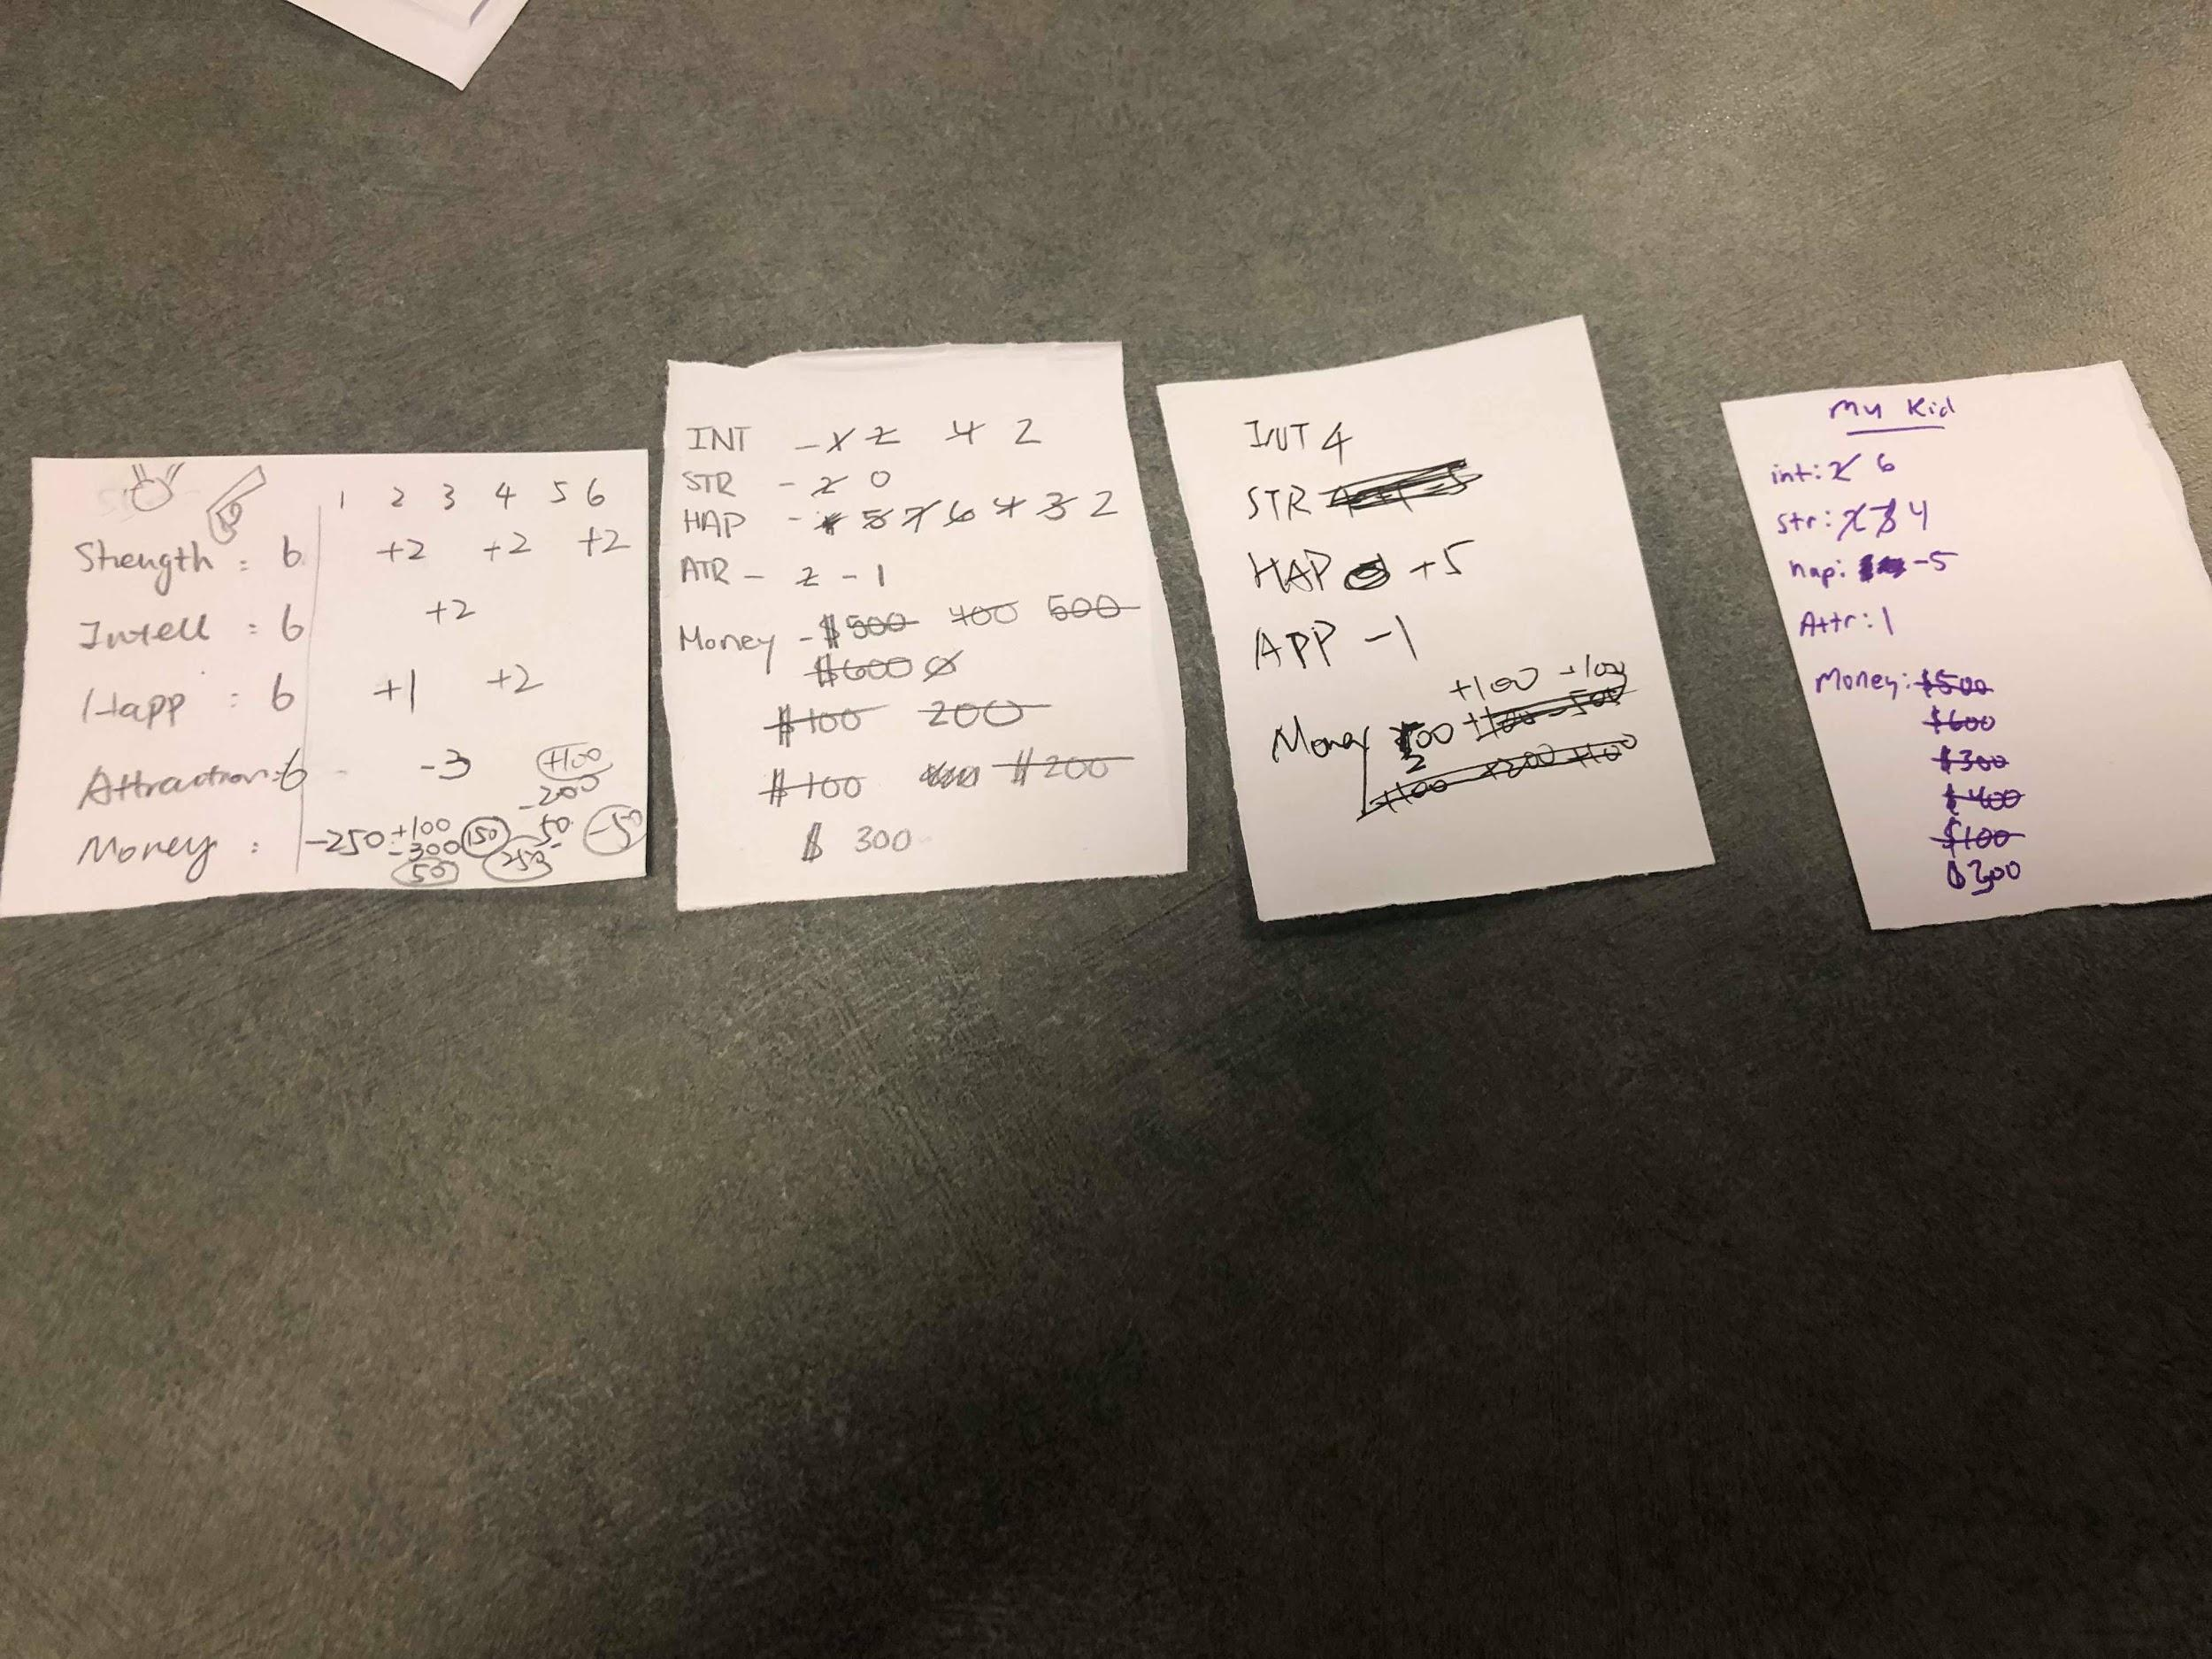 1 2 3 4 5 6
Strength : 6 +2 +2 +2
Intell : 6 +2
Happ : 6 +1 +2
Attraction: 6 -3 +100
-200
Money : -250 +100 150 50 -50
-300
50 250
INT - 2 4 2
STR - 2 0
HAP - 5 7 6 4 3 2
ATR - 2 - 1
Money - $500 400 500
$600 0
$100 200
$100 $200
$ 300
INT 4
STR
HAP +5
APP -1
+100 -100
Money 00 +100 -500
2
+100 +200 +100
My Kid
int: 2 6
str: 2 3 4
hap: -5
Attr: 1
Money: $500
$600
$300
$400
$100
$300